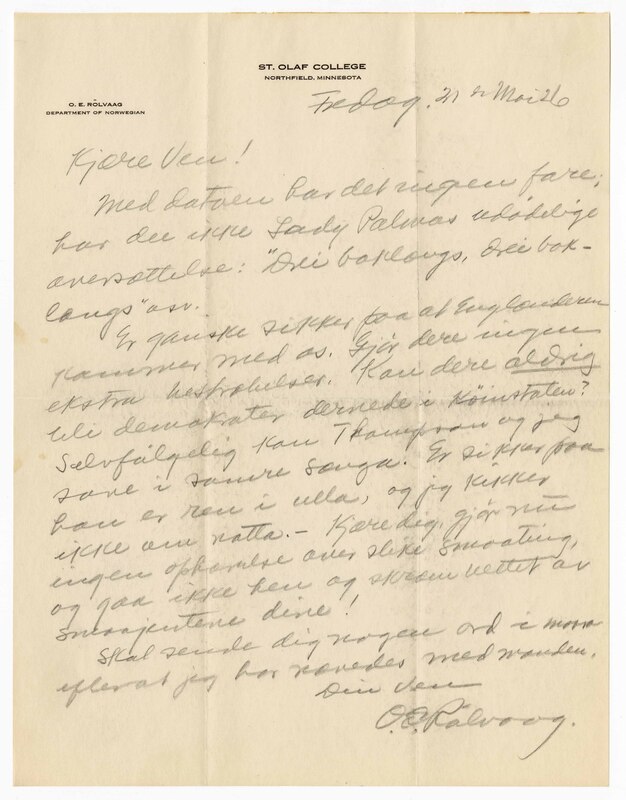 ST. OLAF COLLEGE
NORTHFIELD, MINNESOTA
O. E. RÖLVAAG
DEPARTMENT OF NORWEGIAN
Fredag, 21 Mai 26
Kjære Ven!
Med datoen har det ingen fare;
har du ikke Lady Palmas udødelige
oversættelse: "Drei baklongs, drei bak-
longs" osv.
Er ganske sikker paa at Englænderen
kommer med os. Gjør dere ingen
ekstra bestræbelser. Kan dere aldrig
bli demokrater dernede i Køinstaten?
Selvfølgelig kan Thompson og jeg
sove i samre senga. Er sikker paa
han er ren i ulla, og jeg kikker
ikke om natta. – Kjære dig, gjør nu
ingen ophævelse over slike smaating,
og gaa ikke hen og skræm vettet av
smaajentene dine!
Skal sende dig nogen ord i morra
efterat jeg har med manden.
Din Ven
O.E. Rölvaag.